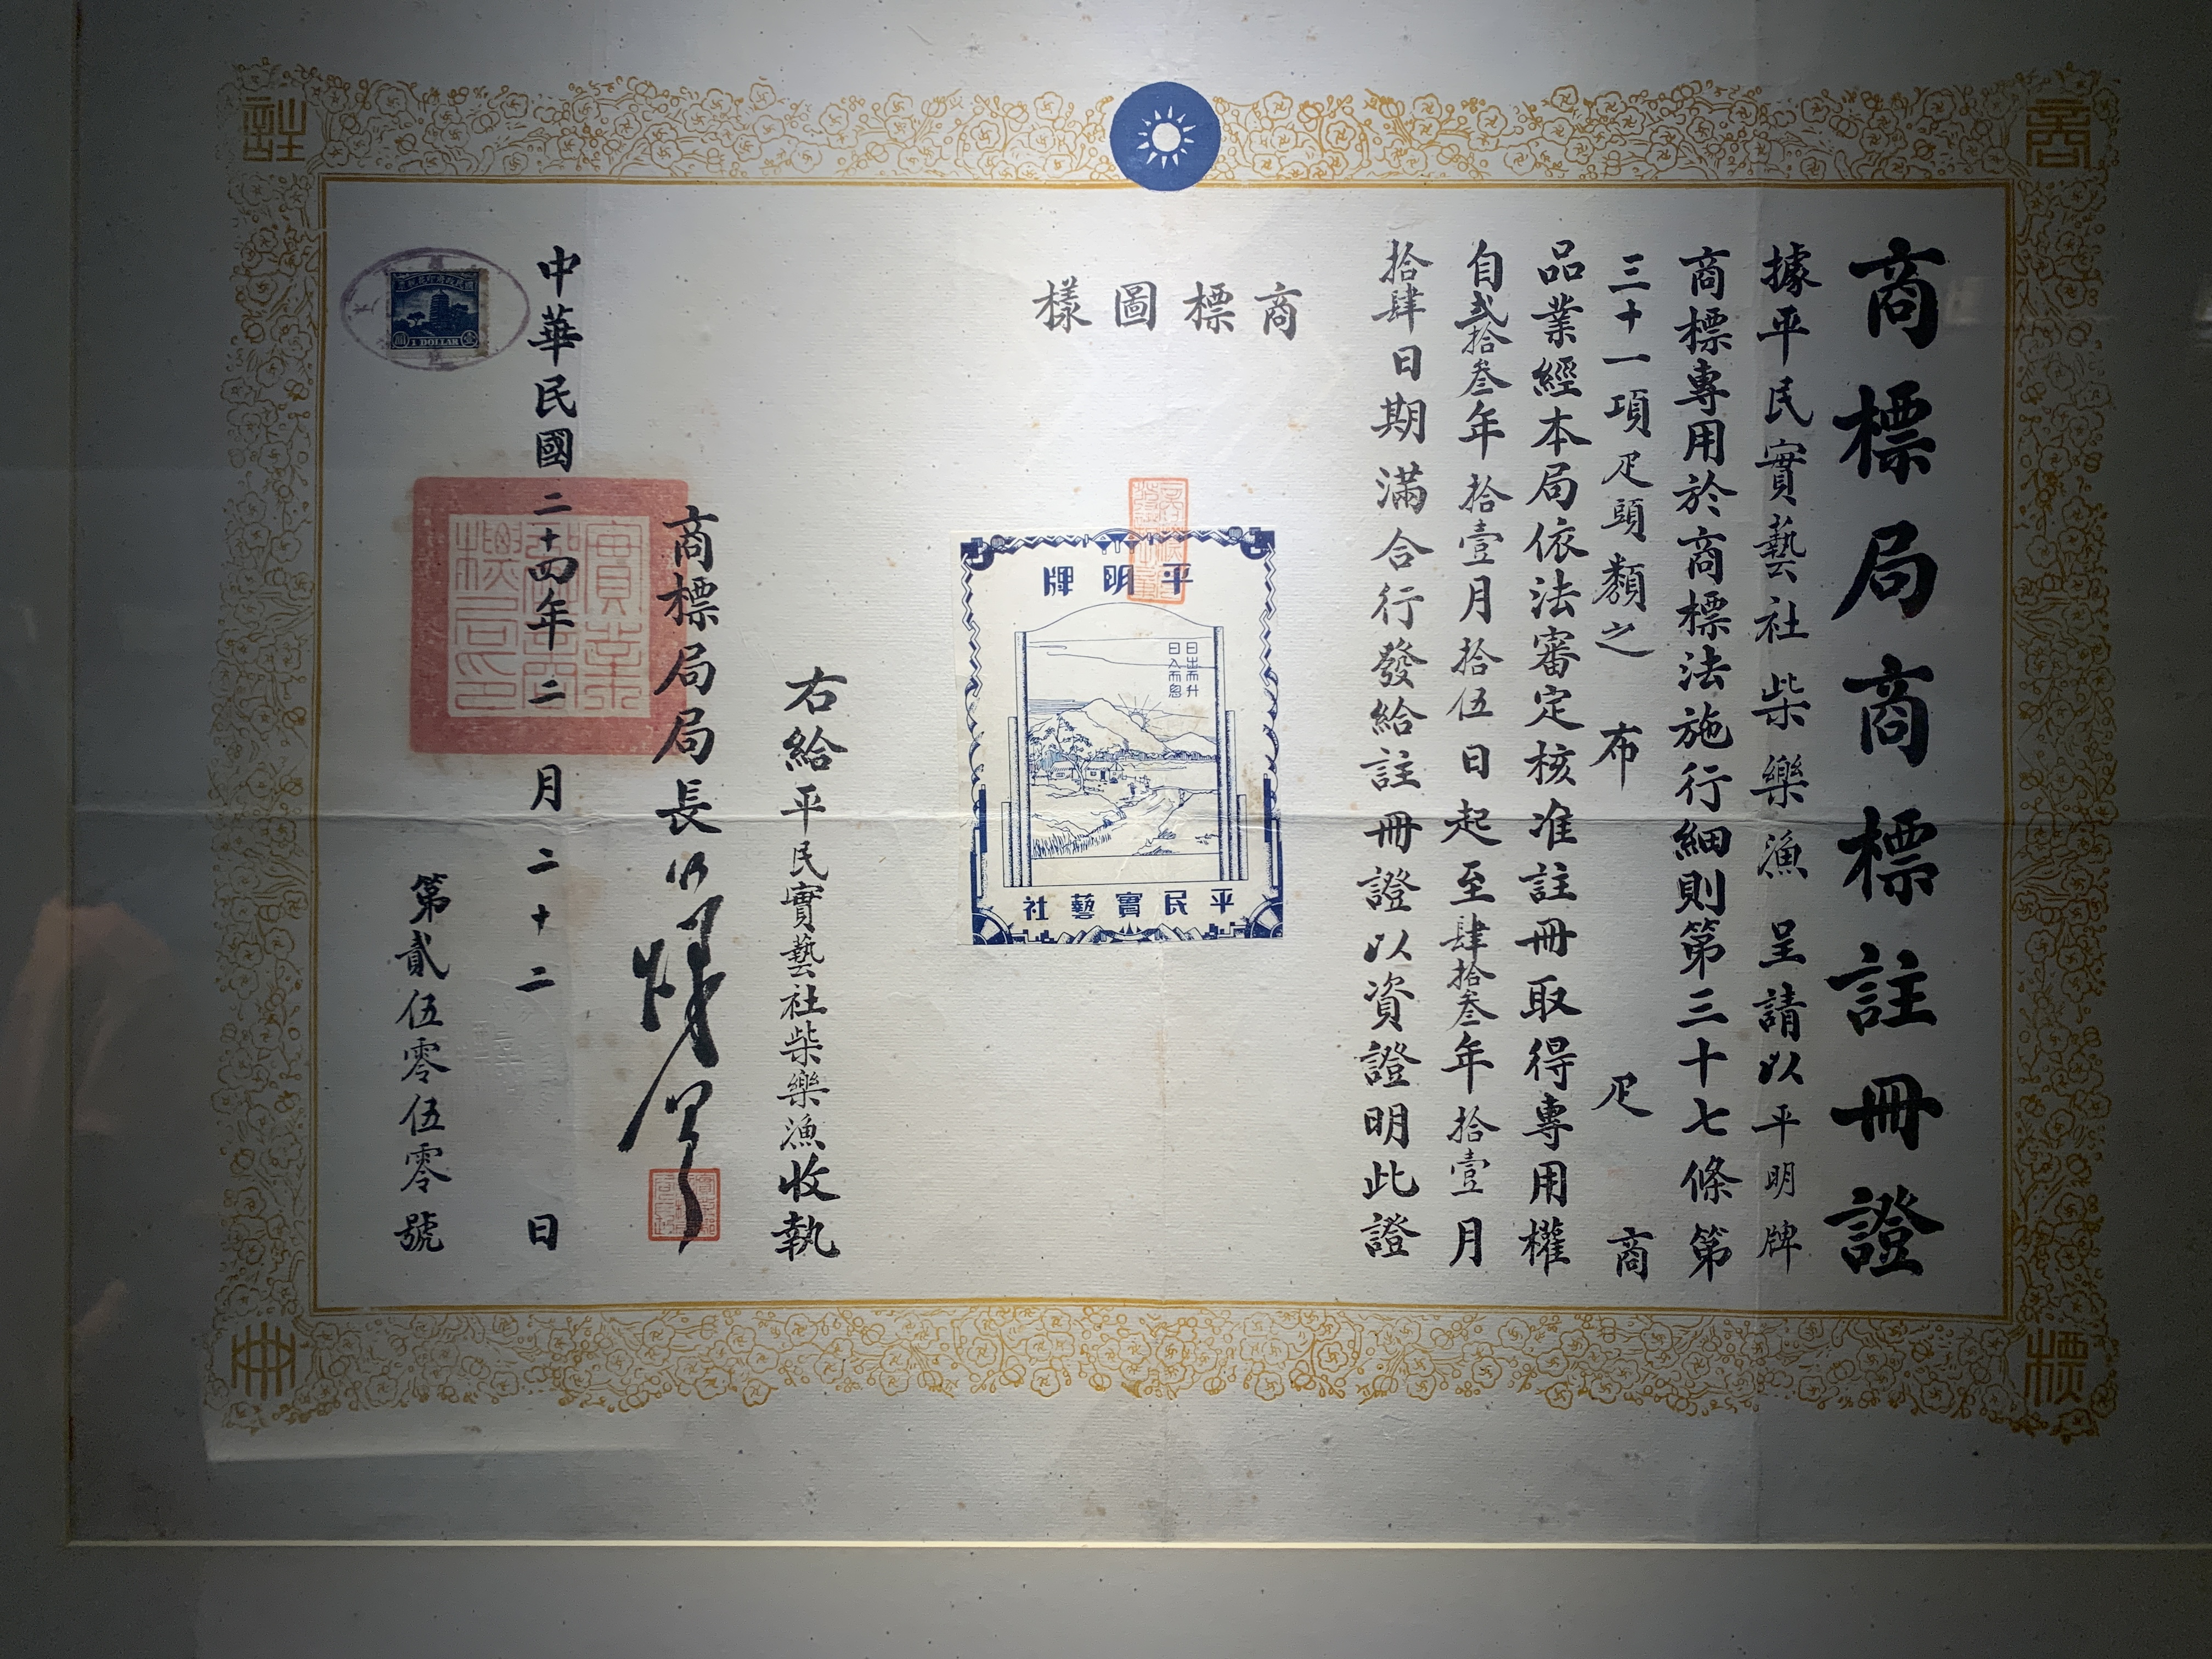 商標局商標註冊證
據平民實藝社 柴樂漁 呈請以平明牌
商標專用於商標法施行細則第三十七條第
三十一項疋頭類之 布 疋 商
品業經本局依法審定核准註冊取得專用權
自貳拾叁年拾壹月拾伍日起至肆拾叁年拾壹月
拾肆日期滿合行發給註冊證以資證明此證
商標圖樣
平明牌
平民實藝社
右給平民實藝社柴樂漁收執
商標局局長
中華民國二十四年二月二十二日
第貳伍零伍零號
實業部商標局印
1 DOLLAR
商
標
註
冊